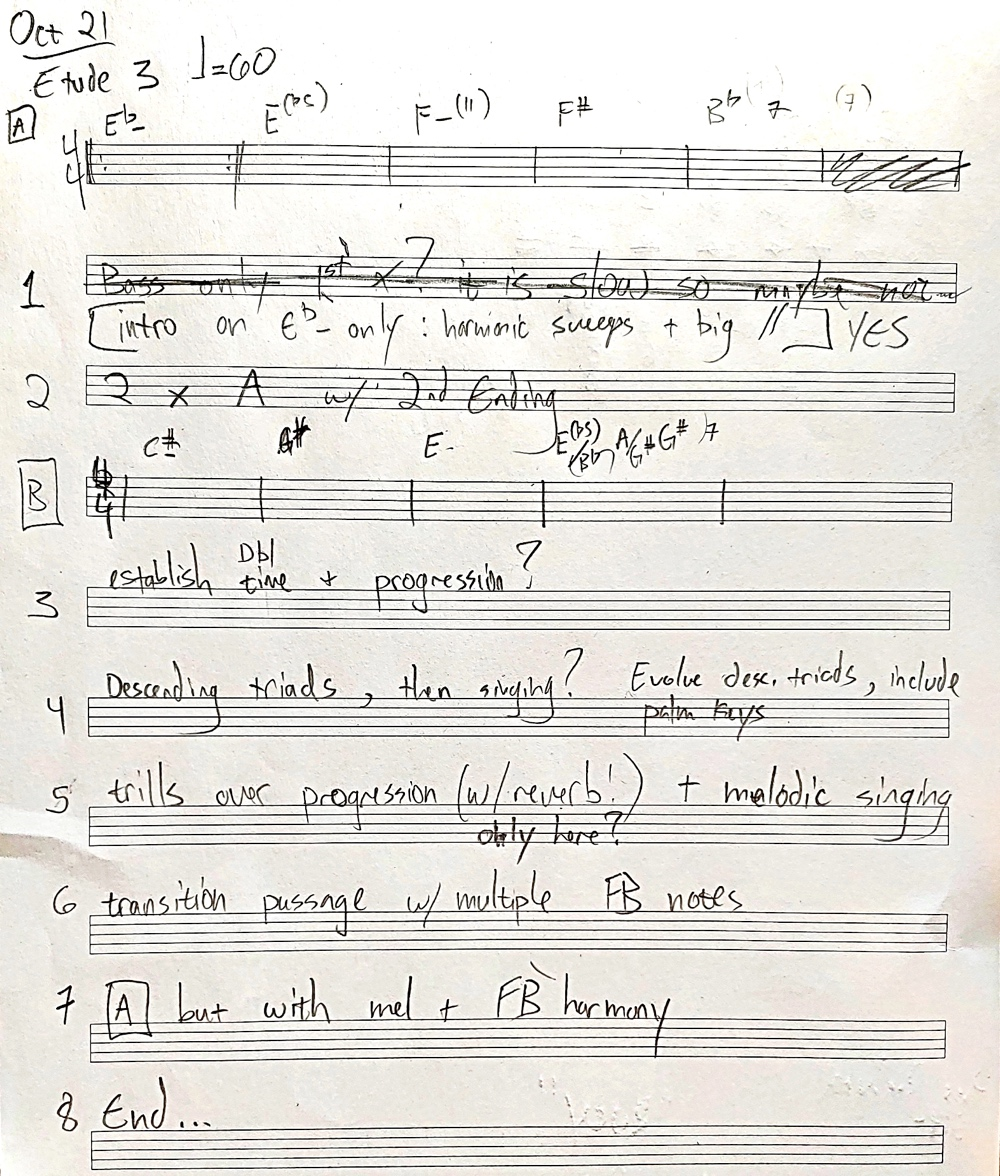 Oct 21
Etude 3 ♩=60
A E♭- E(b5) F-(11) F# B♭ 7 (7)
4
4
1 Bass only 1st x? it is slow so maybe not...
[intro on E♭- only : harmonic sweeps + big //] YES
2 2 x A w/ 2nd Ending
C# G# E- E(b5) A/G# G# 7
(B♭)
B 4
establish Dbl time + progression?
3
Descending triads, then singing? Evolve desc. triads, include
4 palm keys
5 trills over progression (w/reverb!) + melodic singing
only here?
6 transition passage w/ multiple FB notes
7 A but with mel + FB harmony
8 End...